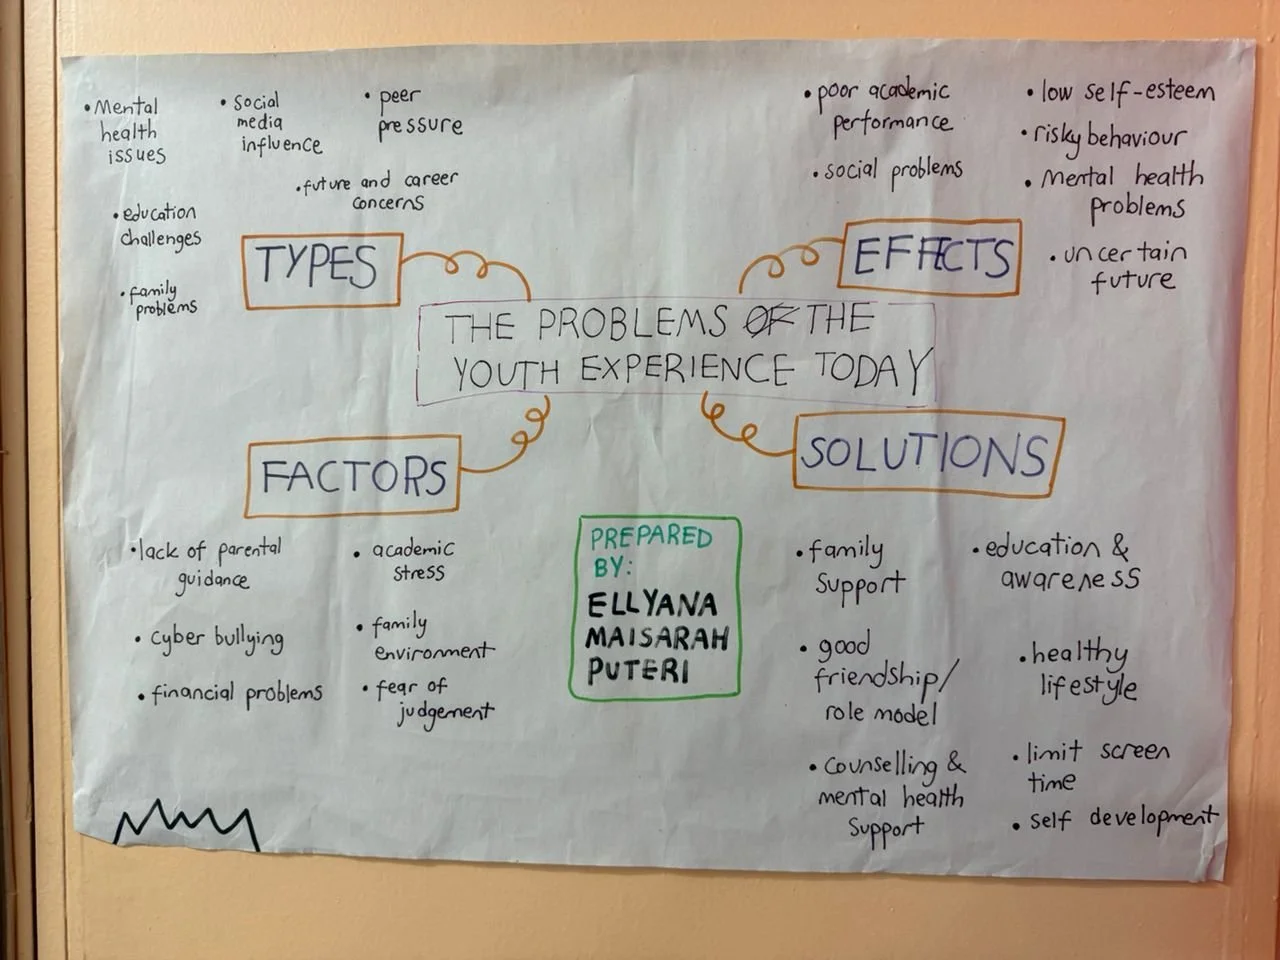 • Mental
health
issues
• Social
media
influence
• peer
pressure
• future and career
concerns
• education
challenges
• family
problems
TYPES
• poor academic
performance
• social problems
• low self-esteem
• risky behaviour
• Mental health
problems
• uncertain
future
EFFECTS
THE PROBLEMS OF THE
YOUTH EXPERIENCE TODAY
FACTORS
• lack of parental
guidance
• cyber bullying
• financial problems
• academic
stress
• family
environment
• fear of
judgement
PREPARED
BY:
ELLYANA
MAISARAH
PUTERI
SOLUTIONS
• family
support
• good
friendship/
role model
• counselling &
mental health
support
• education &
awareness
• healthy
lifestyle
• limit screen
time
• self development